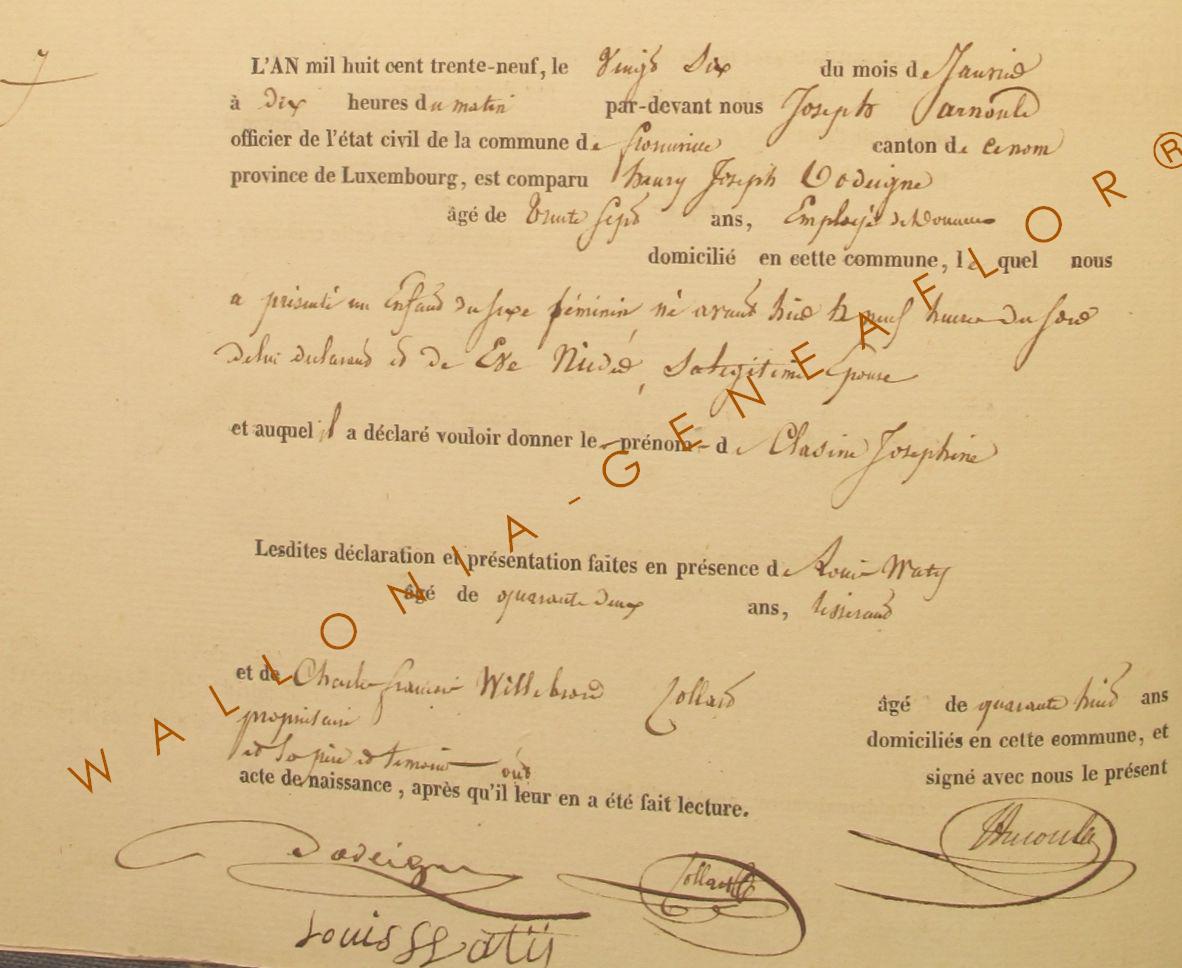 7
L'AN mil huit cent trente-neuf, le Vingt Six du mois de Janvier
à dix heures du matin par-devant nous Joseph arnould
officier de l'état civil de la commune de canton de
province de Luxembourg, est comparu henry Joseph Dodeigne
âgé de trente Sept ans, Employé de Douane
domicilié en cette commune, lequel nous
a présenté un Enfant du sexe féminin né avant hier à neuf heures du soir
de lui declarant et de Eve Sa legitime Epouse
et auquel il a déclaré vouloir donner le prénom de Josephine
Lesdites déclaration et présentation faites en présence de Louis Waty
âgé de quarante deux ans, tisserand
et de Charles francois Willebrord Collard
âgé de quarante huit ans
propriétaire
domiciliés en cette commune, et
et le père et temoins ont
signé avec nous le présent
acte de naissance, après qu'il leur en a été fait lecture.
Dodeigne
Collard
Arnould
Louis Watij
WALLONIA-GENEAFLOR®